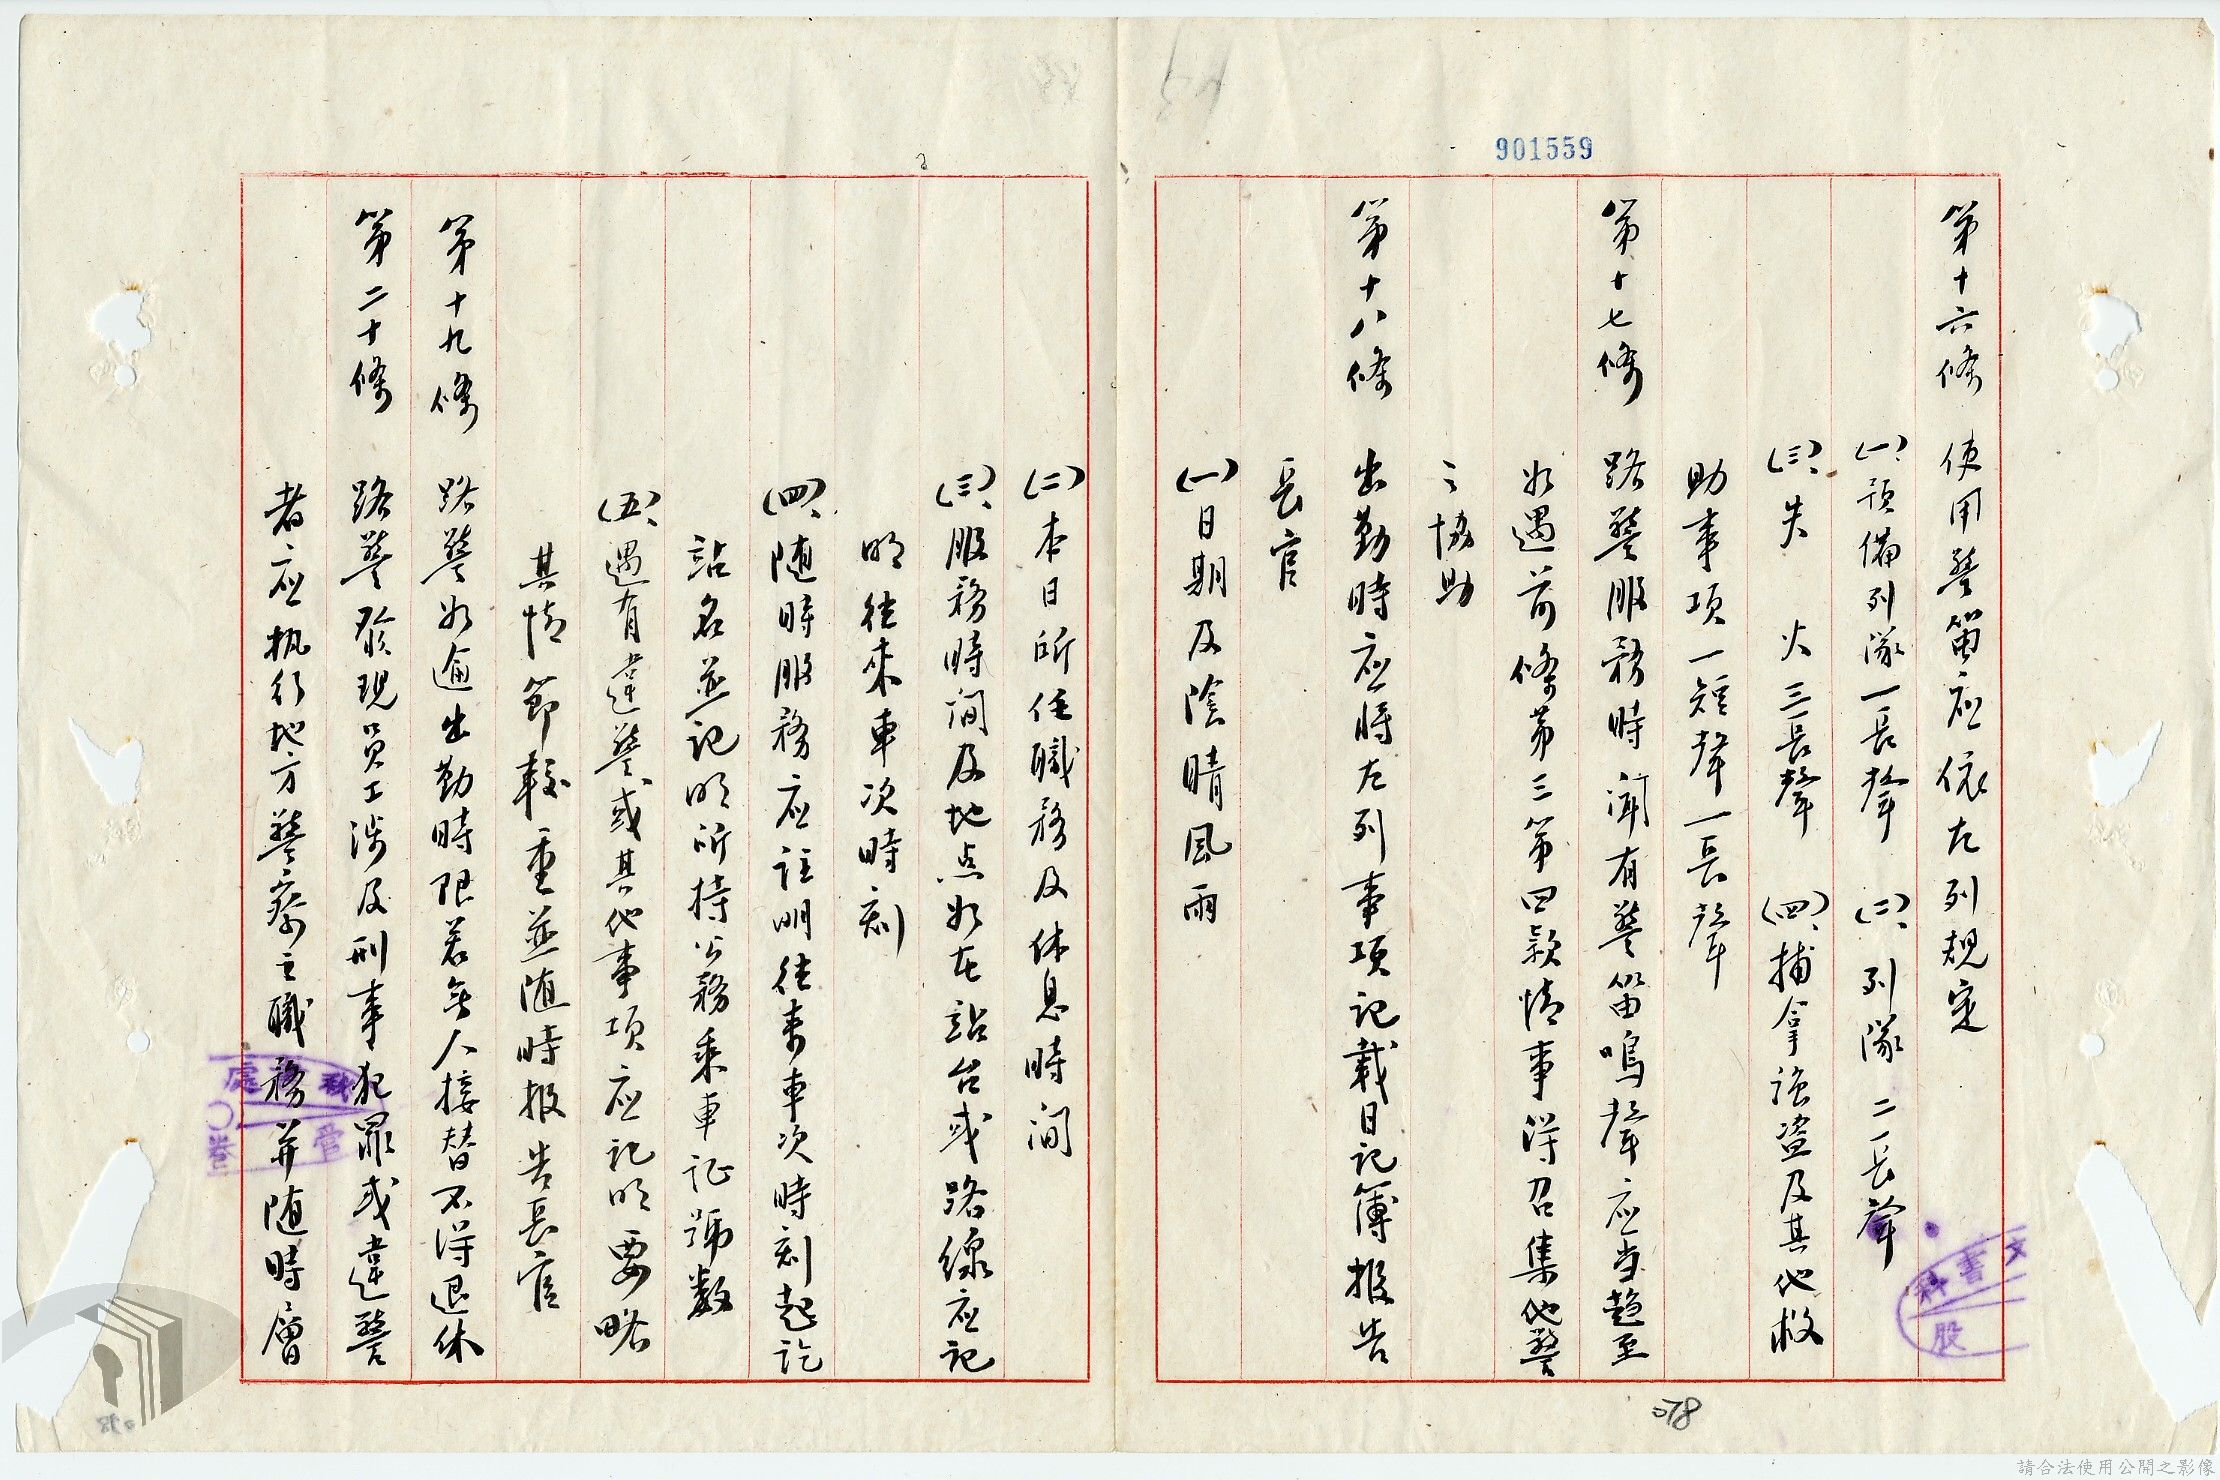 901559
第十六條 使用警笛应依左列規定
(一)、預備列隊一長聲 (二)、列隊二長聲
(三)、失 火三長聲 (四)、捕拿強盗及其他救
助事項一短聲一長聲
第十七條 路警服務時聞有警笛鳴聲应当趋至
如遇前條第三第四款情事得召集他警
之協助
第十八條 出勤時应將左列事項記載日記簿报告
長官
(一)日期及陰晴風雨
(二)本日所任職務及休息時间
(三)、服務時间及地点如在站台或路線应記
明往來車次時刻
(四)、随時服務应註明往來車次時刻起訖
站名並記明所持公務乘車证號数
(五)、遇有違警或其他事項应記明要略
其情節較重並随時报告長官
第十九條 路警如逾出勤時限若無人接替不得退休
第二十條 路警發現员工涉及刑事犯罪或違警
者应执行地方警察之職務并随時層
文書科
股
078
請合法使用公開之影像